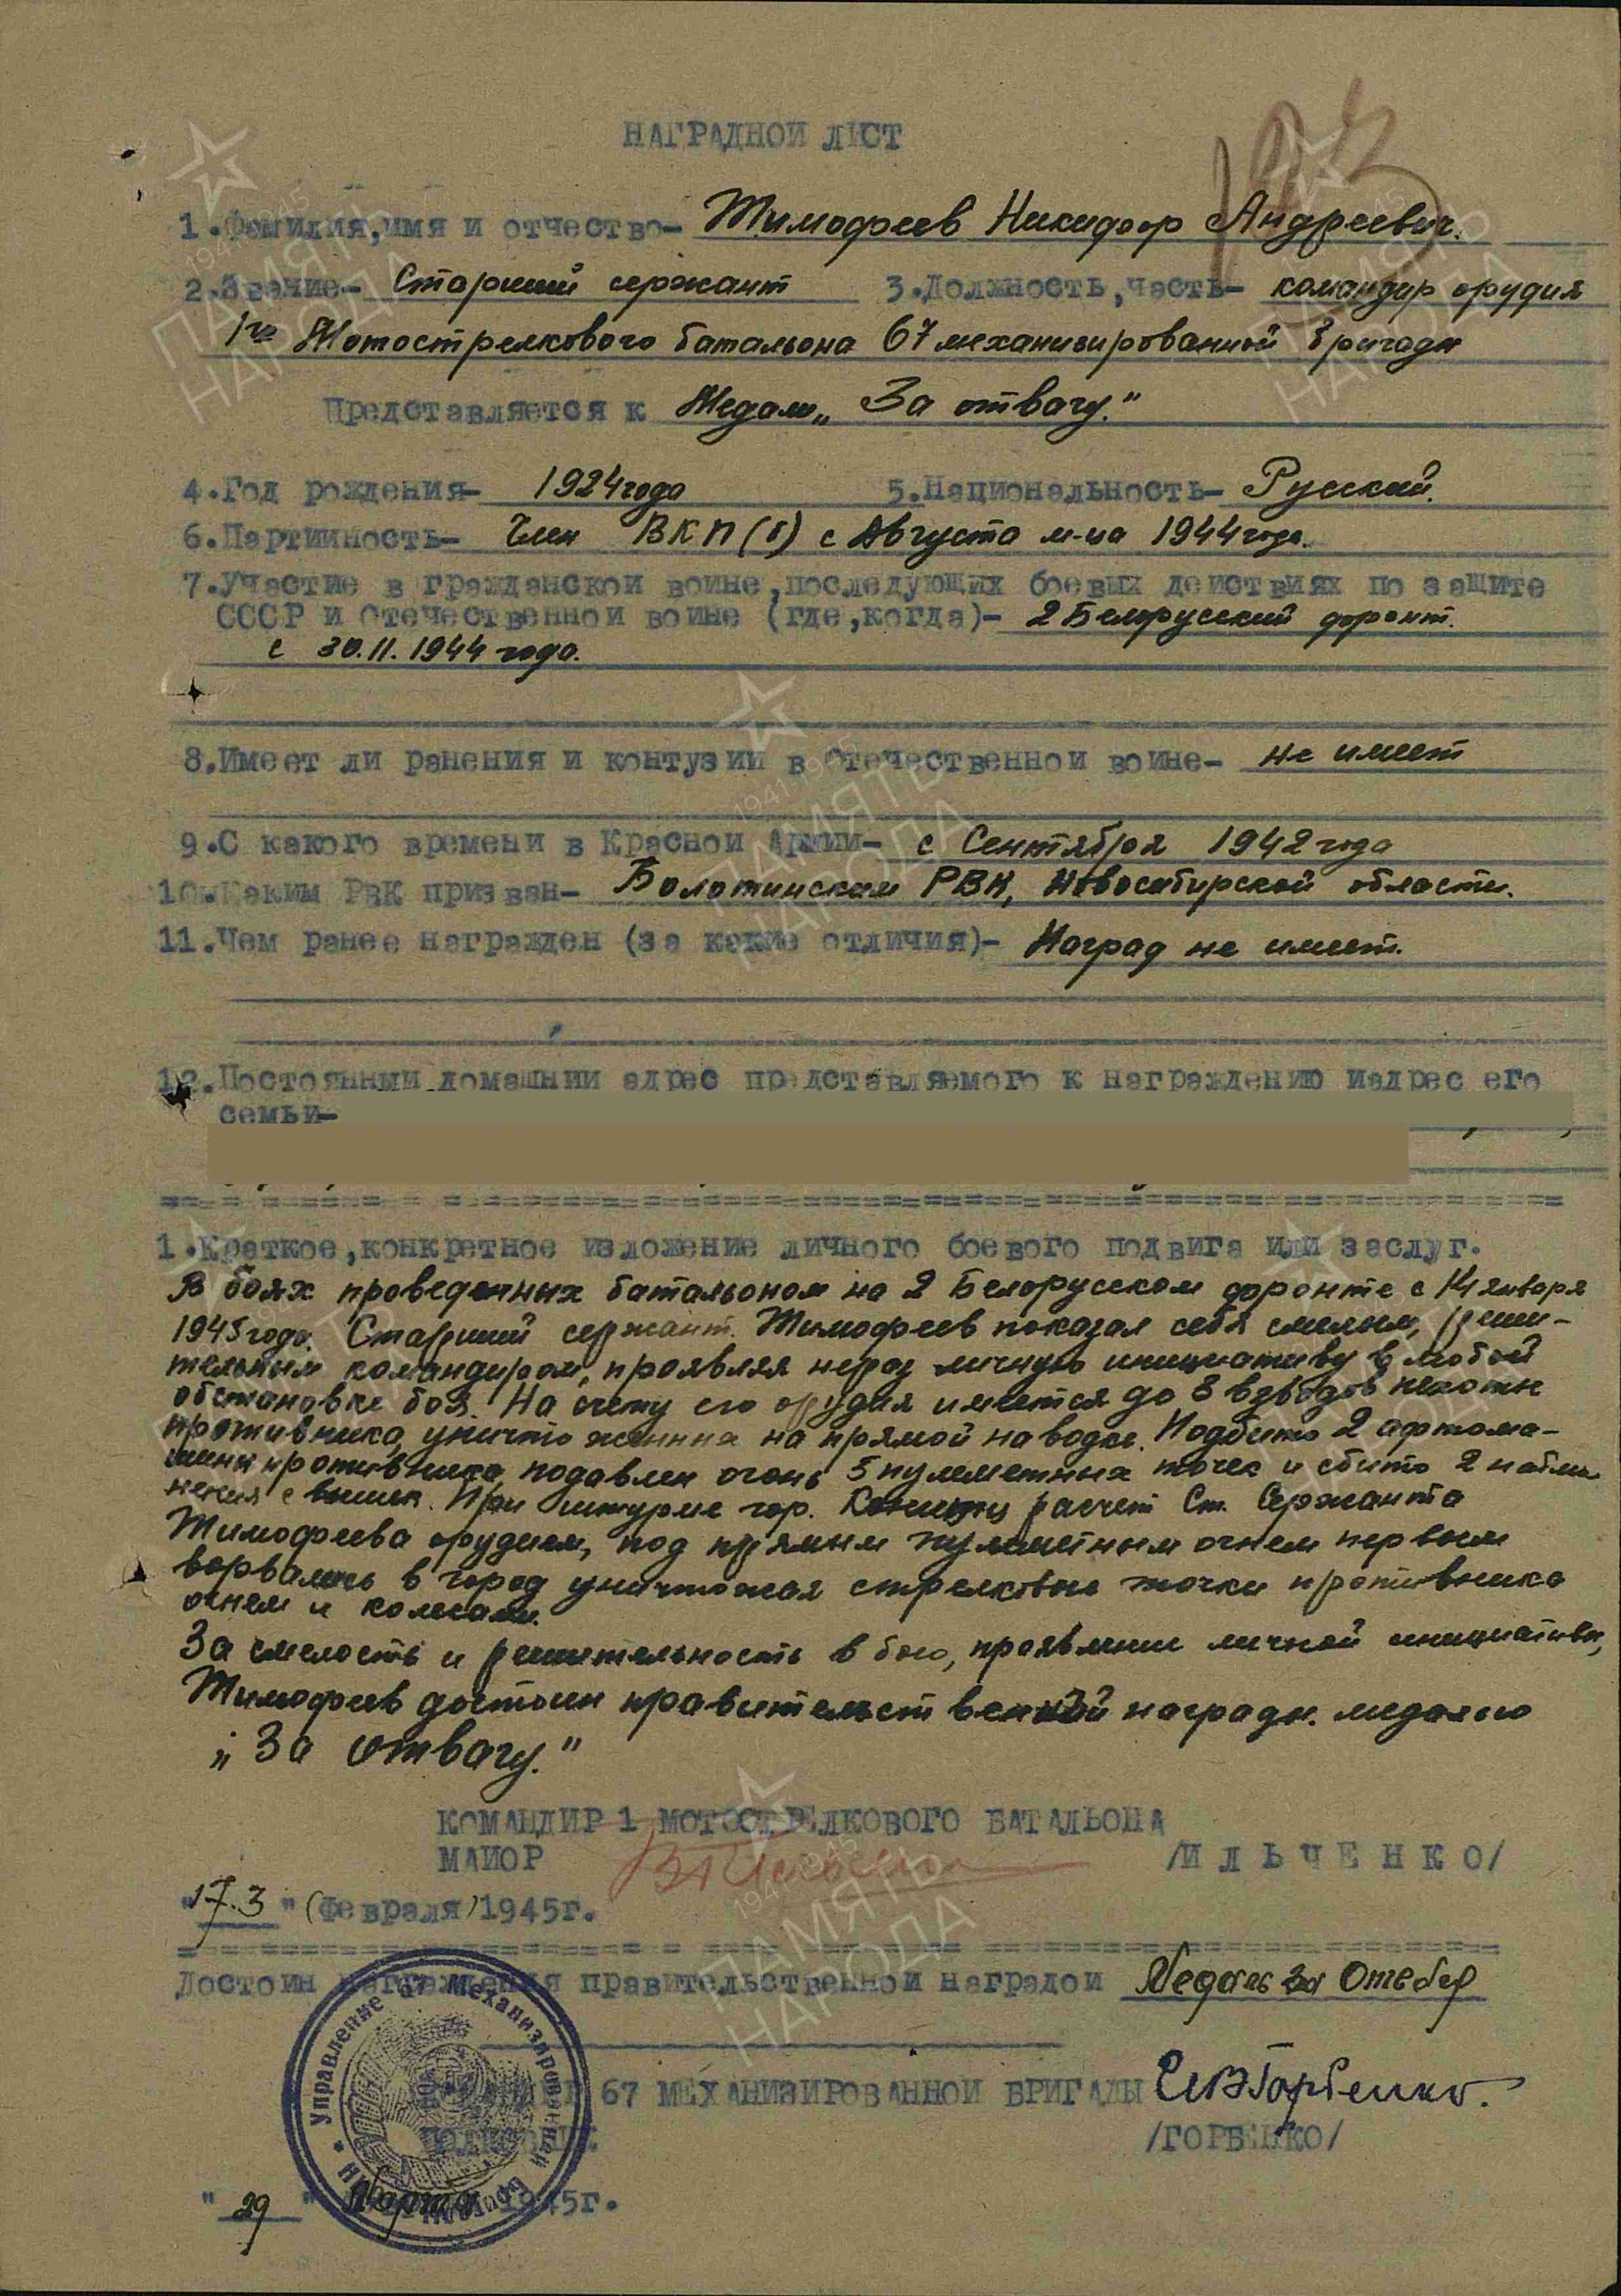 НАГРАДНОЙ ЛИСТ
1.Фамилия,имя и отчество- Тимофеев Никифор Андреевич.
2.Звание- Старший сержант 3.Должность,часть- командир орудия
1го Мотострелкового батальона 67 механизированной бригады
Представляется к Медали „За отвагу."
4.Год рождения- 1924 года 5.Национальность- Русский.
6.Партийность- Член ВКП(б) с Августа м-ца 1944 года.
7.Участие в гражданской войне,последующих боевых действиях по защите
СССР и отечественной войне (где,когда)- 2 Белорусский фронт.
с 30.11.1944 года.
8.Имеет ли ранения и контузии в отечественной войне- не имеет
9.С какого времени в Красной Армии- с Сентября 1942 года
10.Каким РВК призван- Болотинским РВК, Новосибирской области.
11.Чем ранее награжден (за какие отличия)- Наград не имеет.
12.Постоянный домашний адрес представляемого к награждению иадрес его
семьи-
1.Краткое,конкретное изложение личного боевого подвига или заслуг.
В боях проведенных батальоном на 2 Белорусском фронте с 14 января
1945 года. Старший сержант. Тимофеев показал себя смелым, реши-
тельным командиром, проявляя нераз личную инициативу в любой
обстановке боя. На счету его орудия имеется до 3 взводов пехоты
противника, уничтоженных на прямой наводке. Подбито 2 автома-
шины противника, подавлен огонь 5 пулеметных точек и сбито 2 наблю
дения с вышек. При штурме гор. расчет Ст. Сержанта
Тимофеева орудием, под прямым пулеметным огнем первым
ворвались в город уничтожая стрелковые точки противника
огнем и колесами.
За смелость и решительность в бою, проявление личной инициативы,
Тимофеев достоин правительственной награды. медалью
„За отвагу."
КОМАНДИР 1 МОТОСТРЕЛКОВОГО БАТАЛЬОНА
МАЙОР /ИЛЬЧЕНКО/
"17.3" (Февраля) 1945г.
Достоин награждения правительственной наградой Медаль За Отвагу
КОМАНДИР 67 МЕХАНИЗИРОВАННОЙ БРИГАДЫ Горбенко.
ПОЛКОВНИК /ГОРБЕНКО/
"29" Марта 1945г.
Управление 67 Механизированной Бригады
1941-1945
ПАМЯТЬ
НАРОДА